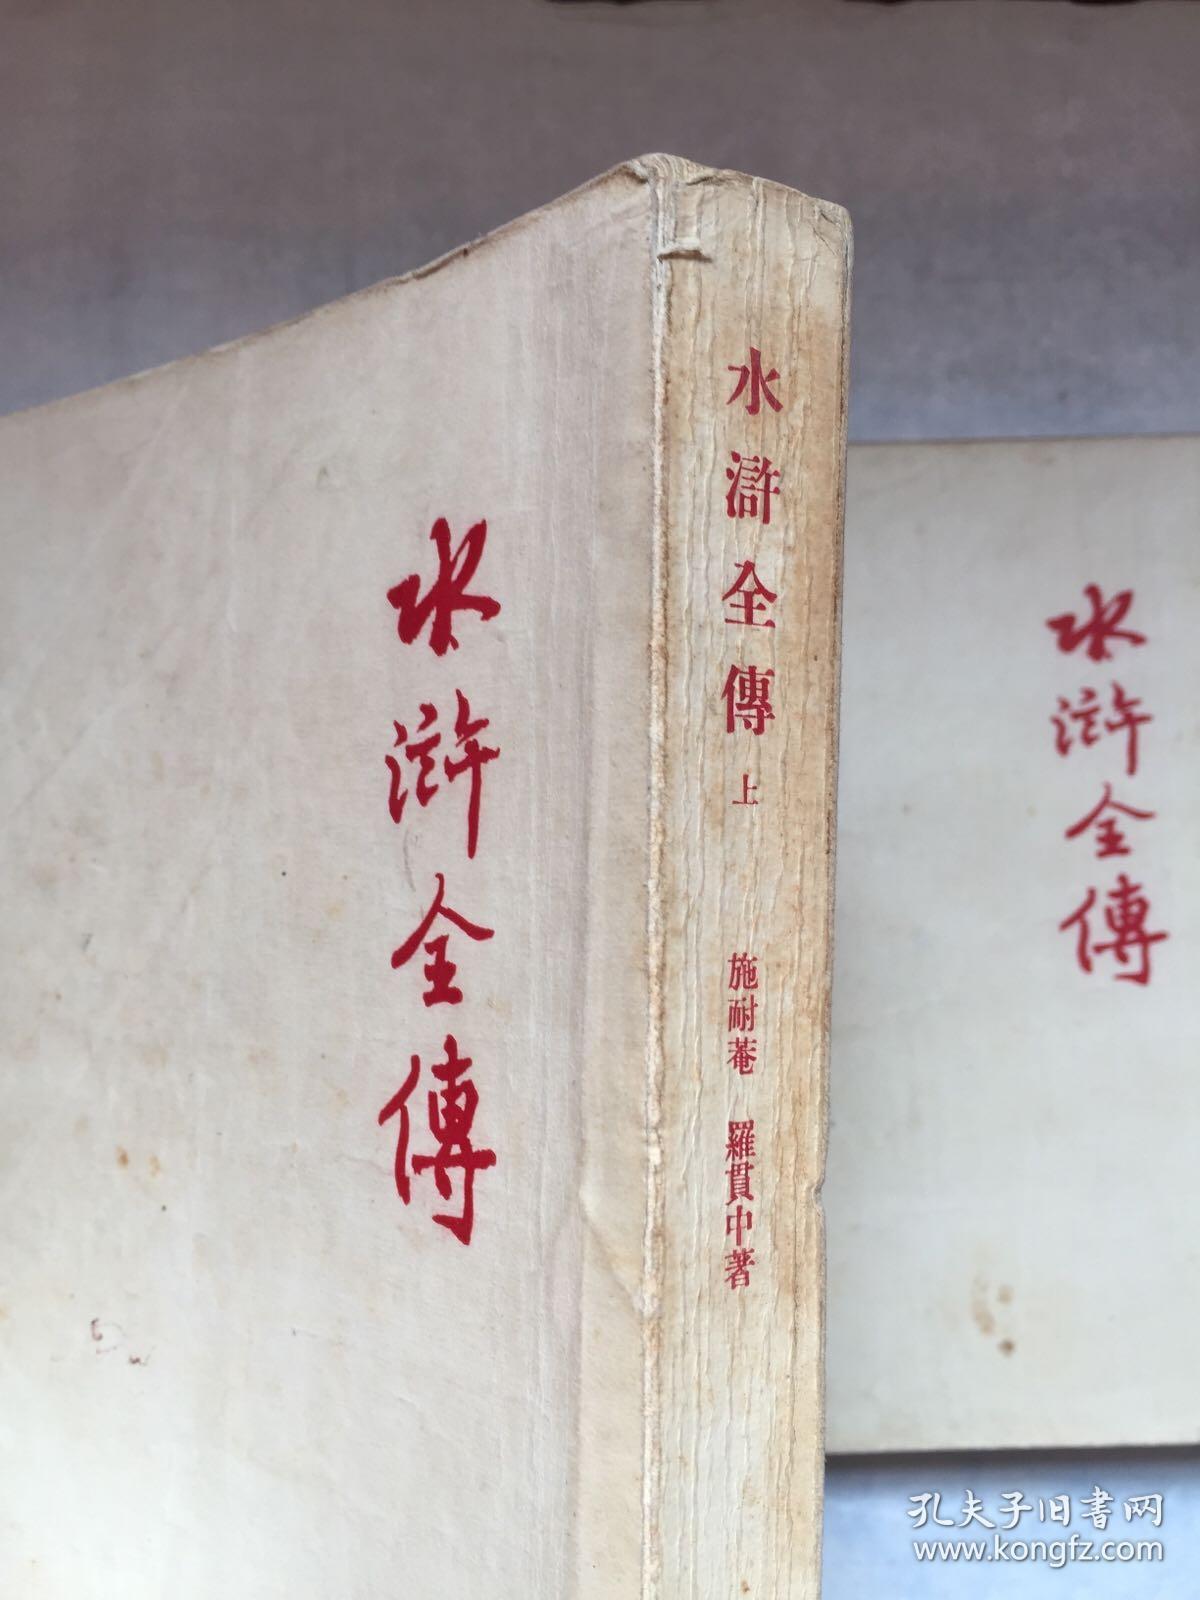 水滸全傳
水滸全傳 上
施耐菴 羅貫中著
水滸全傳
孔夫子旧書网
www.kongfz.com